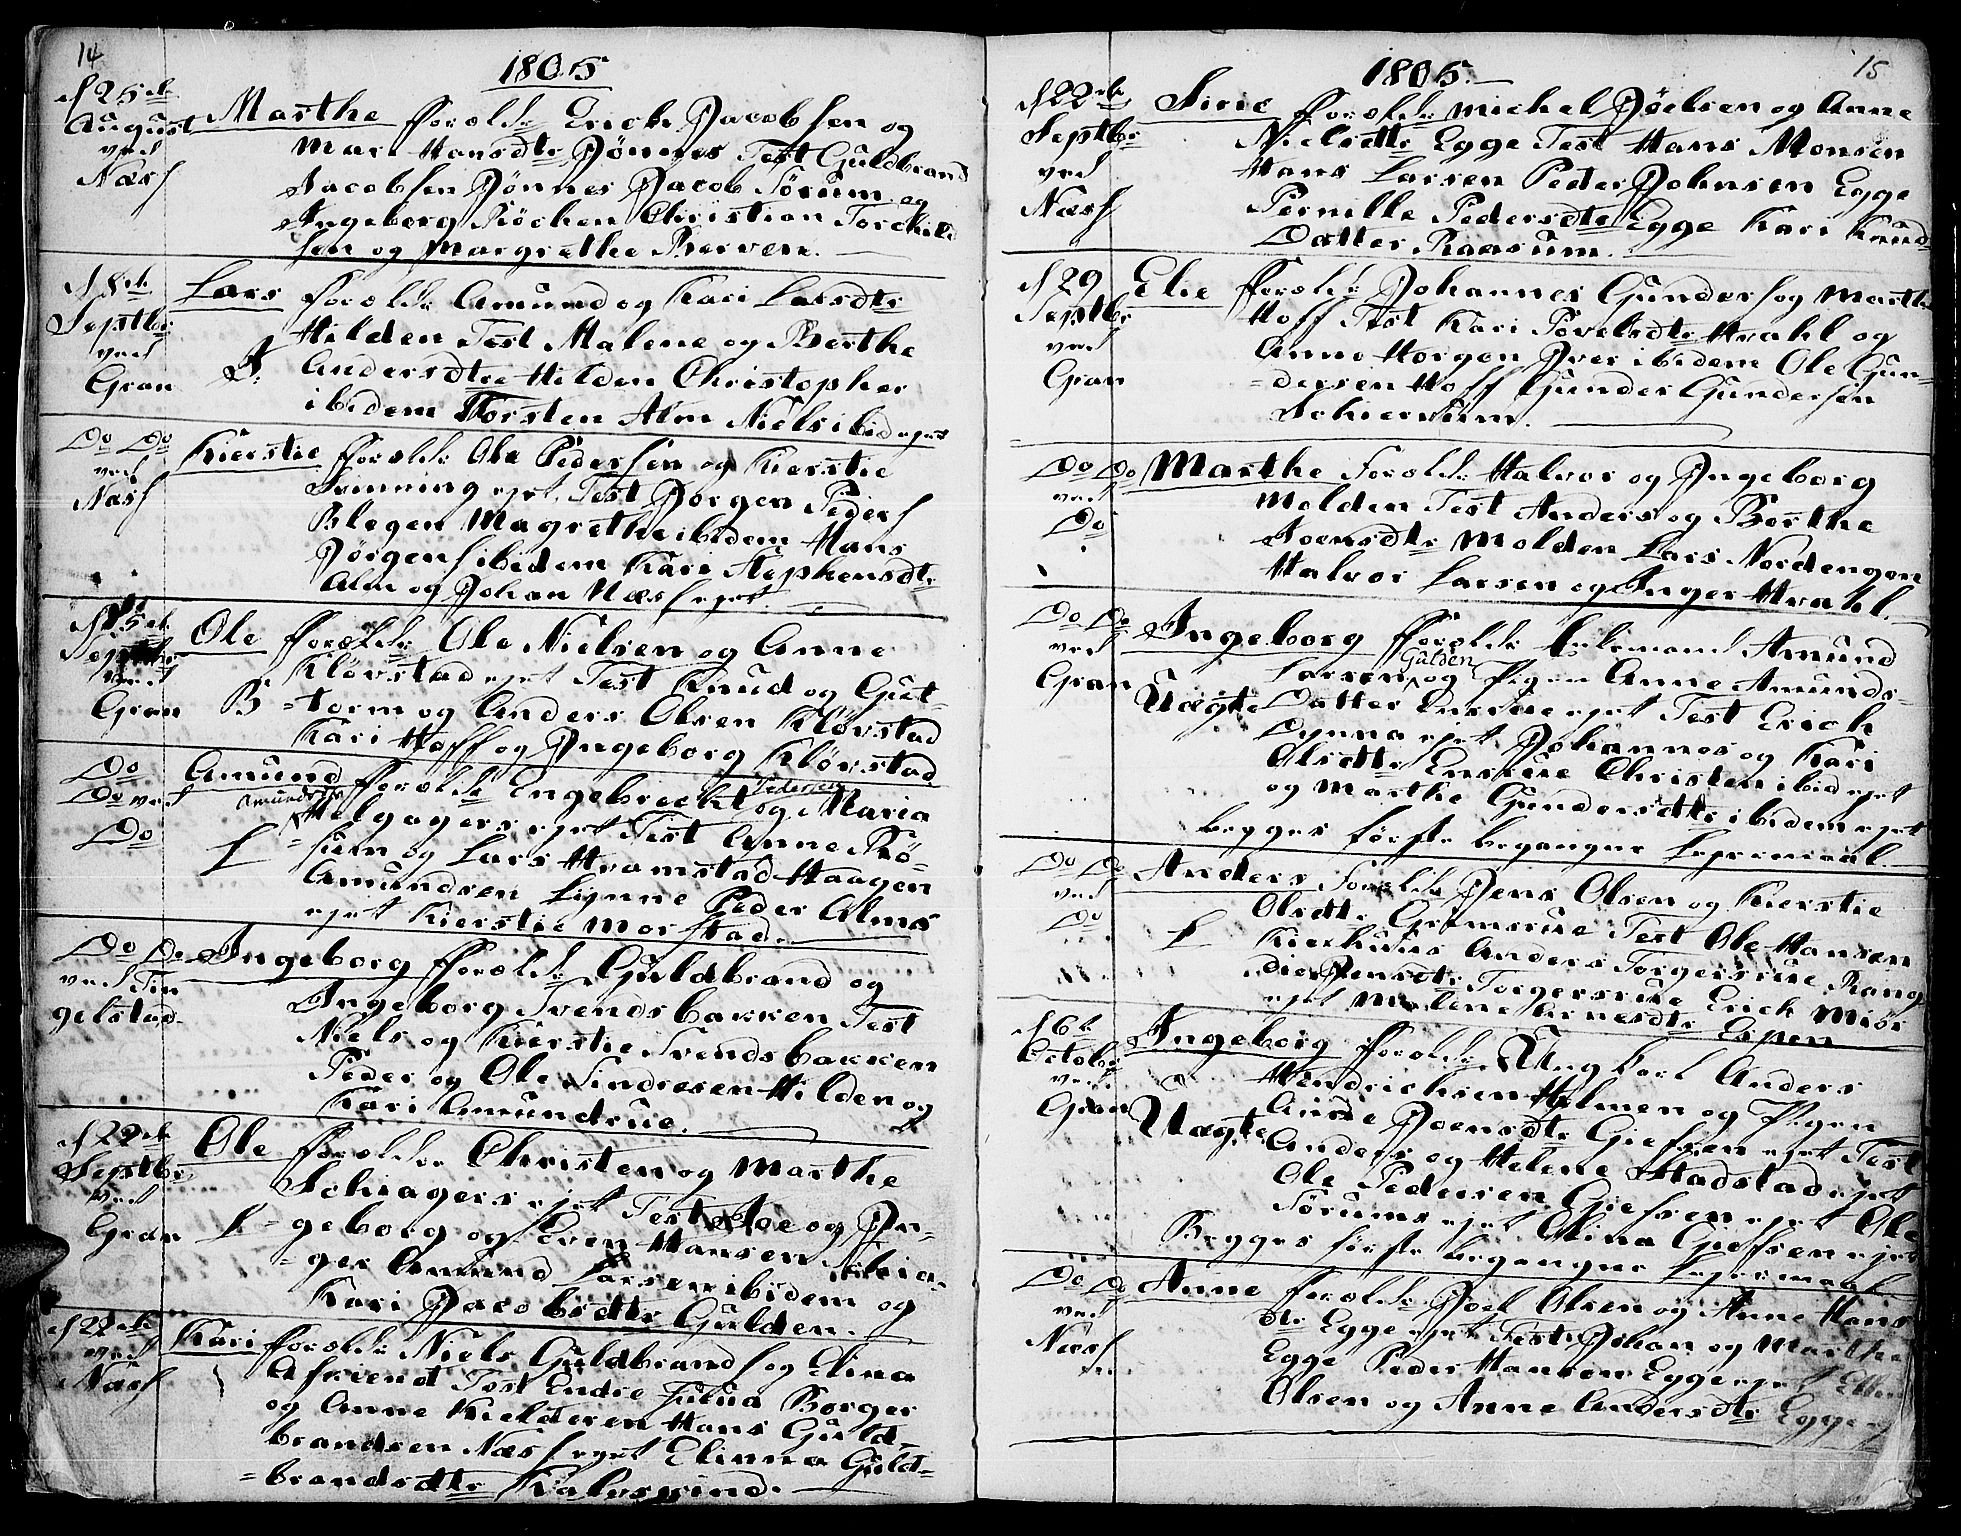 14
1805
d 25de
August
ved
Næss
Marthe Foreldr Erich Jacobsen og
Mari Hansdtr Jønnes Test Guldbrand
Jacobsen Jønnes Jacob Sørum og
Ingeborg Røchen Christian Torchild
sen og Margrethe Berven.
d 8de
Septbr
ved
Gran
Lars foreldr Amund og Kari Larsdtr
Hilden Test Malene og Berthe
Andersdtre Hilden Christopher
ibidem Torsten Alm Niels ibid ejet
Do Do
ved
Næss
Kierstie Foreldr Ole Pedersen og Kierstie
ejet Test Jørgen Peders
Blegen Magrethe ibidem Hans
Jörgens ibidem Kari Stephensdtr
Alm og Johan Næss ejet.
d 15de
Septbr
ved
Gran
Ole Foreldr Ole Nielsen og Anne
Kløvstad ejet Test Knud og Gut-
B = torm og Anders Olsen Kløvstad
Kari Hoff og Ingeborg Kløvstad
Do
Do ved
Do
Amund Foreldr Engebrecht Pedersen og Maria
Amundsdtr Helgagers ejet Test Anne Rö-
L = siem og Lars Hramstad Haagen
Amundsen Lynne Peder Alms
ejet Kierstie Morstad.
Do Do
ved Tin
gelstad
Ingeborg Foreldr Guldbrand og
Ingeborg Svendsbakken Test
Niels og Kierstie Svendsbakken
Peder og Ole Sindresen Hilden og
Kari Amundrue.
d 22de
Septbr
ved
Gran
Ole foreldr Christen og Marthe
Schiagers ejet Test Aoe og In-
L = geborg og Even Hansen Schia-
= ger Amund Larsen ibidem og
Kari Jacobsdtr Gulden.
d 22de
ved
Næss
Kari foreldr Niels Guldbrands og Elina
Test Endre Borger
og Anne Kielderen Hans Guld-
brandsen Næss ejet Elinna Guld-
= brandsdtr Kalvsvind.
15
1805.
d 22de
Septbr
ved
Næss
Sirie Foreldr Michel Jöelsen og Anne
Nielsdtr Egge Test Hans Monsen
Hans Larsen Peder Johnsen Egge
Pernille Pedersdtr Egge Kari Knud-
Datter Raasum.
d 29
Septbr
ved
Gran
Elie Foreldr Johannes Gunders og Marthe
Hoff Test Kari Povelsdtr Hvahl og
Anne Horgen Iver ibidem Ole Gun-
= dersen Hoff Gunder Gundersen
Schiervum.
Do Do
ved
Do
Marthe Foreldr Halvor og Ingeborg
Molden Test Anders og Berthe
Joensdtr Molden Lars Nordengen
Halvor Larsen og Inger Hvahl.
Do Do
ved
Gran
Uægte
Ingeborg Foreldr Enkemand Amund
Larsen Gulden og Pigen Anne Amunds-
Datter Ensrue ejet Test Erich
Dynna ejet Johannes og Kari
Olsdtr Ensrue Christen ibid ejet
og Marthe Gundersdtr ibidem ejet
begges første begangne Lejermaal.
Do Do
ved
Do
Anders Foreldr Jens Olsen og Kierstie
Olsdtr Grimsrue Test Ole Hansen
L Kiexhuus Anders Torgersrue Rang
Jensdtr Torgersrue Erich Miör
ejet Malene Espen
d 6te
October
ved
Gran
Uægte
Ingeborg Foreldr Ung Karl Anders
Hendrichsen Helmen og Pigen
Anne Joensdtr Giefsen ejet Test
Anders og Helene Stadstad ejet
Ole Pedersen Giefsen ejet Ole
Sørums ejet Elina Gieffsen ejet
Begges første begangne Lejermaal
Do Do
ved
Næss
Anne Foreldr Joel Olsen og Anne Hans
dtr Egge ejet Test Johan og Marthe
Egge Peder Hansen Egge ejet
Olsen og Anne Andersdtr Egge